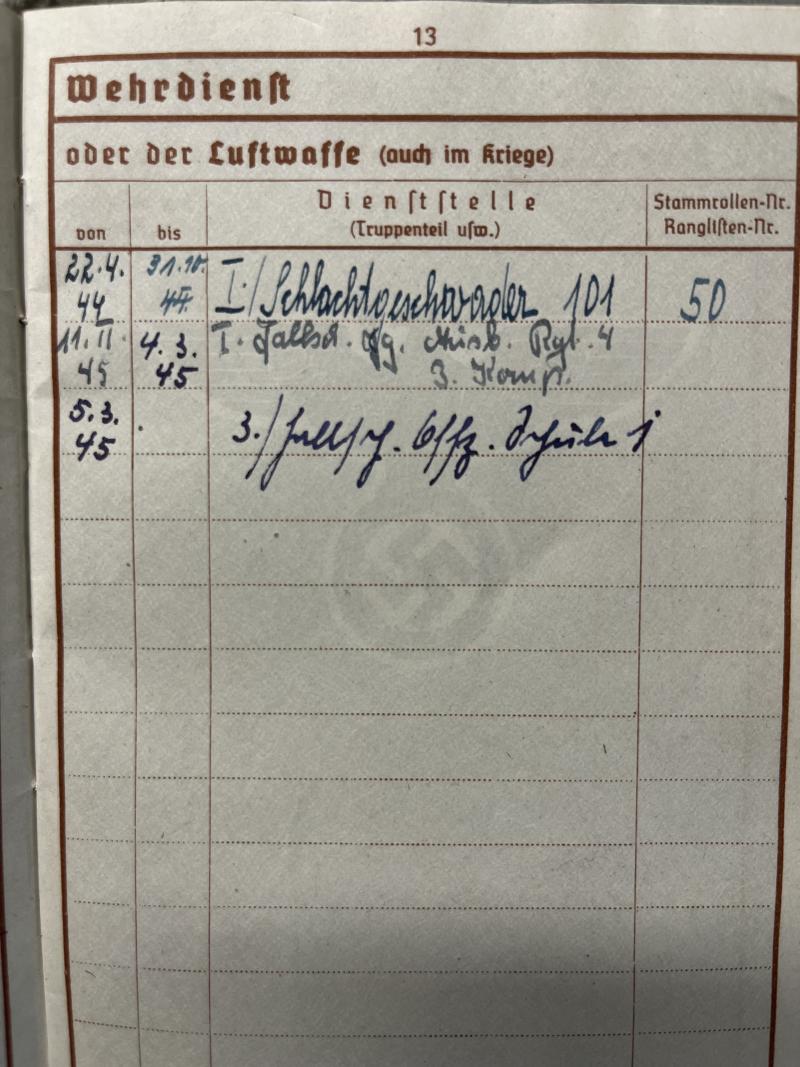 13
Wehrdienst
oder der Luftwaffe (auch im Kriege)
von
bis
Dienststelle
(Truppenteil usw.)
Stammrollen-Nr.
Ranglisten-Nr.
22.4.
44
31.10.
44
I./Schlachtgeschwader 101
50
11.II
45
4.3.
45
I. Fallsch. Jg. Ausb. Rgt. 4
3. Komp.
5.3.
45
3./Fallsch. Offz. Schule 1